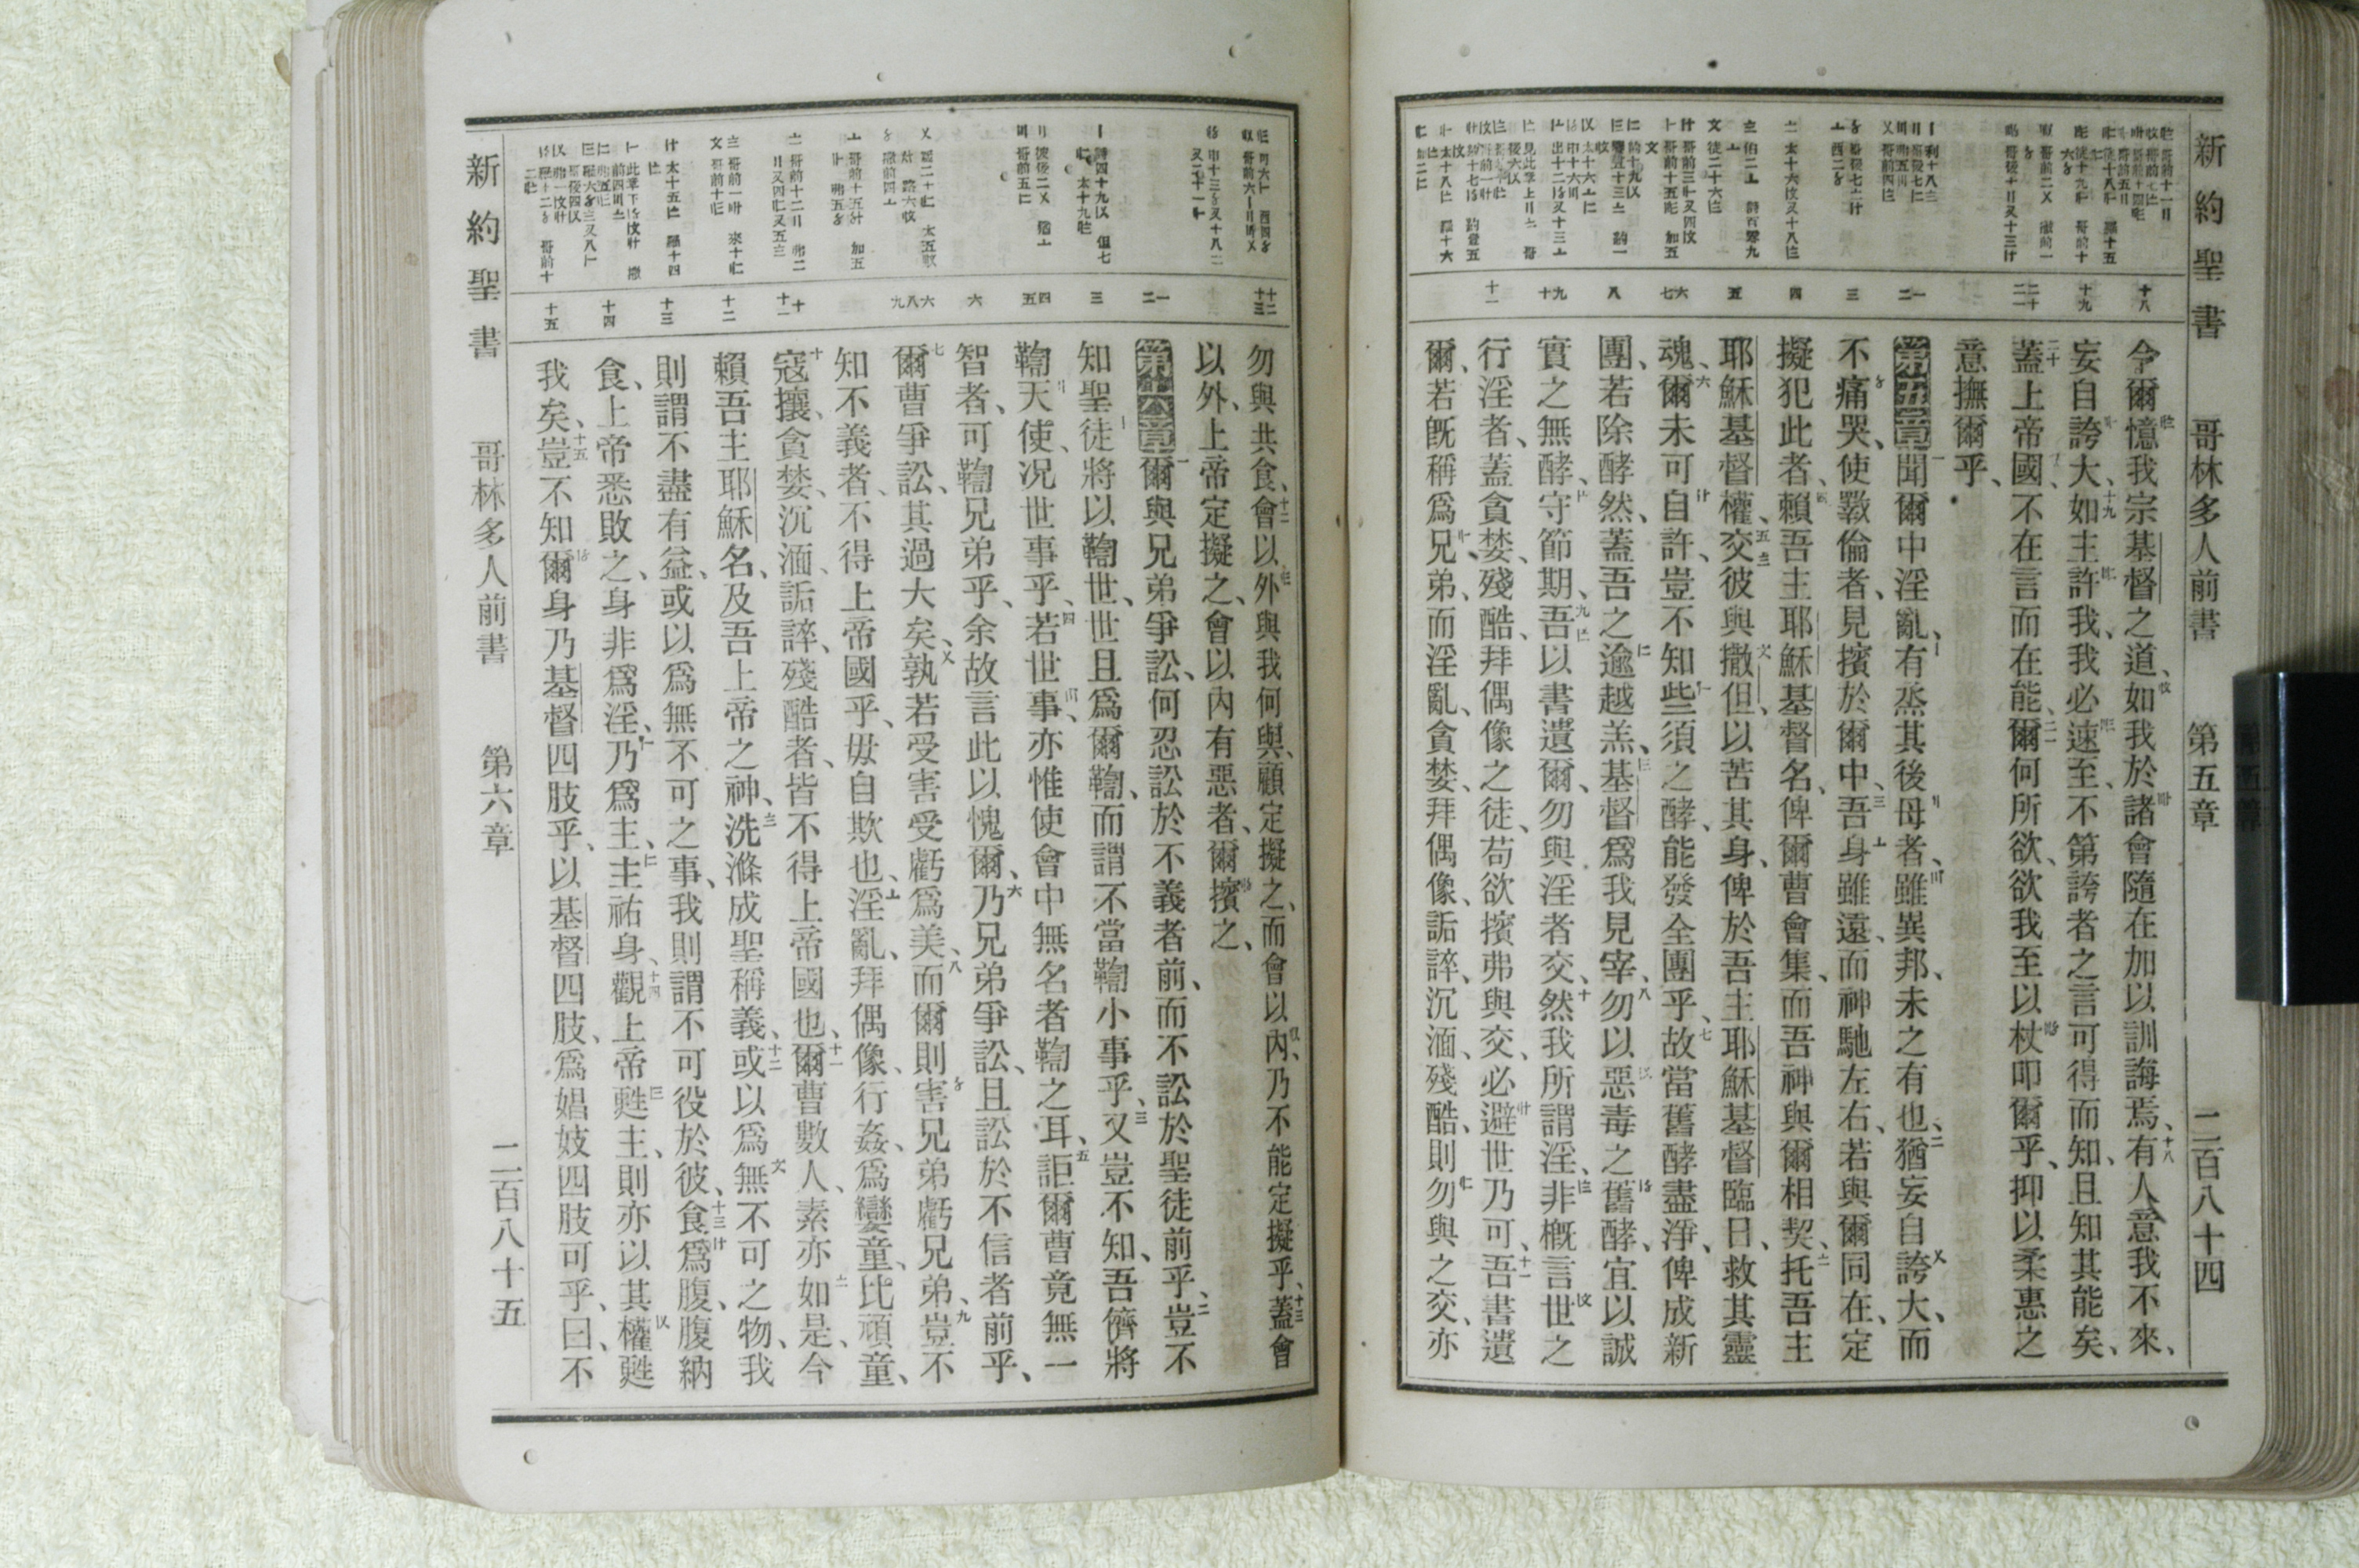 新約聖書 哥林多人前書 第五章 二百八十四
十八
十九
二十
二一
一二
三
四
五
六七
八
九十
十一
令爾憶我宗基督之道、如我於諸會隨在加以訓誨焉、十八有人意我不來、
妄自誇大、十九如主許我、我必速至、不第誇者之言可得而知、且知其能矣、
二十蓋上帝國、不在言而在能、二一爾何所欲、欲我至以杖叩爾乎、抑以柔惠之
意撫爾乎、
第五章一聞爾中淫亂、有烝其後母者、雖異邦、未之有也、二猶妄自誇大、而
不痛哭、使斁倫者、見擯於爾中、三吾身雖遠、而神馳左右、若與爾同在、定
擬犯此者、四賴吾主耶穌基督名、俾爾曹會集、而吾神與爾相契、托吾主
耶穌基督權、五交彼與撒但、以苦其身、俾於吾主耶穌基督臨日、救其靈
魂、六爾未可自許、豈不知些須之酵、能發全團乎、七故當舊酵盡淨、俾成新
團、若除酵然、蓋吾之逾越羔、基督爲我見宰、八勿以惡毒之舊酵、宜以誠
實之無酵、守節期、九吾以書遺爾、勿與淫者交、十然我所謂淫、非概言世之
行淫者、蓋貪婪、殘酷、拜偶像之徒、苟欲擯弗與交、必避世乃可、十一吾書遺
爾、若旣稱爲兄弟、而淫亂、貪婪、拜偶像、詬誶、沉湎、殘酷、則勿與之交、亦
十二
十三
一二
三
四五
六
六八九
十十一
十二
十三
十四
十五
勿與共食、十二會以外與我何與、顧定擬之、而會以內、乃不能定擬乎、十三蓋會
以外、上帝定擬之、會以內有惡者、爾擯之、
第六章一爾與兄弟爭訟、何忍訟於不義者前、而不訟於聖徒前乎、二豈不
知聖徒將以鞫世、世且爲爾鞫、而謂不當鞫小事乎、三又豈不知、吾儕將
鞫天使、况世事乎、四若世事、亦惟使會中無名者鞫之耳、五詎爾曹竟無一
智者、可鞫兄弟乎、余故言此以愧爾、六乃兄弟爭訟、且訟於不信者前乎、
七爾曹爭訟、其過大矣、孰若受害受虧爲美、八而爾則害兄弟虧兄弟、九豈不
知不義者、不得上帝國乎、毋自欺也、淫亂、拜偶像、行姦、爲孌童、比頑童、
十寇攘、貪婪、沉湎、詬誶、殘酷者、皆不得上帝國也、十一爾曹數人、素亦如是、今
賴吾主耶穌名、及吾上帝之神、洗滌成聖稱義、十二或以爲無不可之物、我
則謂不盡有益、或以爲無不可之事、我則謂不可役於彼、十三食爲腹、腹納
食、上帝悉敗之、身非爲淫、乃爲主、主祐身、十四觀上帝甦主、則亦以其權甦
我矣、十五豈不知爾身乃基督四肢乎、以基督四肢、爲娼妓四肢可乎、曰、不
新約聖書 哥林多人前書 第六章 二百八十五